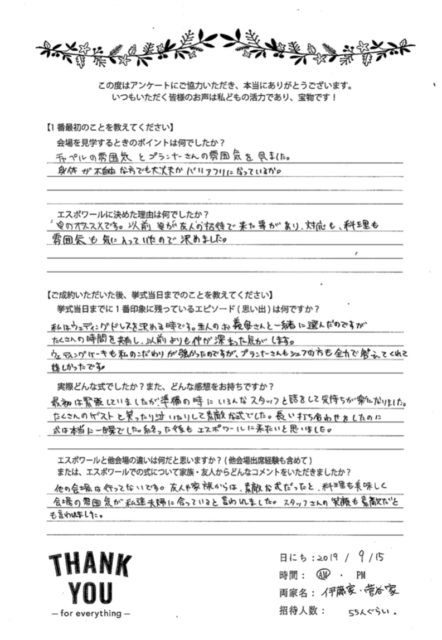 この度はアンケートにご協力いただき、本当にありがとうございます。
いつもいただく皆様のお声は私どもの活力であり、宝物です！
【1番最初のことを教えてください】
会場を見学するときのポイントは何でしたか？
チャペルの雰囲気とプランナーさんの雰囲気を見ました。
身体が不自由な方でも大丈夫かバリアフリになっているか。
エスポワールに決めた理由は何でしたか？
母のオススメです。以前母が友人の招待で来た事があり、対応も、料理も
雰囲気も気に入っていたので決めました。
【ご成約いただいた後、挙式当日までのことを教えてください】
挙式当日までに1番印象に残っているエピソード(思い出)は何ですか？
私はウェディングドレスを決める時です。主人のお義母さんと一緒に選んだのですが
たくさんの時間を共有し、以前よりも仲が深まった気がします。
ウェディングケーキも私のこだわりが強かったのですが、プランナーさんもシェフの方も全力で答えてくれて
嬉しかったです。
実際どんな式でしたか？また、どんな感想をお持ちですか？
最初は緊張していましたが準備の時にいろんなスタッフと話をして気持ちが楽になりました。
たくさんのゲストと笑ったり泣いたりして素敵な式でした。長い打ち合わせをしたのに
式は本当に一瞬でした。終った後もエスポワールに来たいと思いました。
エスポワールと他会場の違いは何だと思いますか？(他会場出席経験も含めて)
または、エスポワールでの式について家族・友人からどんなコメントをいただきましたか？
他の会場は行ってないです。友人や家族からは、素敵な式だったと、料理も美味しく
会場の雰囲気が私達夫婦に合っていると言われました。スタッフさんの笑顔も素敵だと
も言われました。
THANK
YOU
— for everything —
日にち：2019/9/15
時間：AM・PM
両家名：伊藤家・菅谷家
招待人数：55人ぐらい。